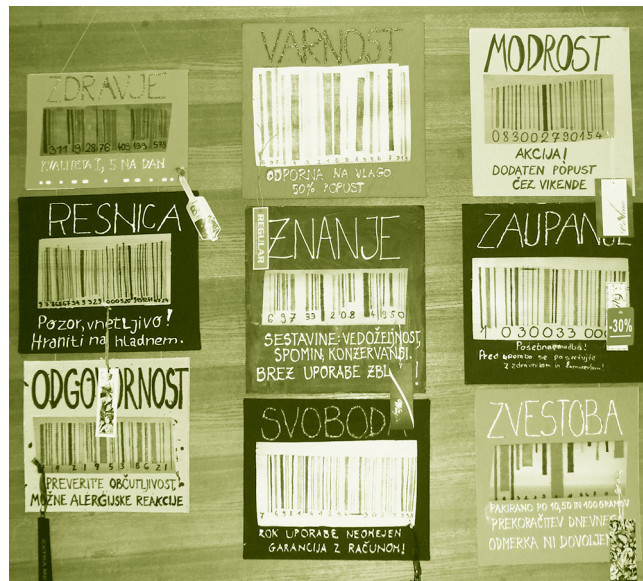 ZDRAVJE
KVALITETA I, 5 NA DAN
VARNOST
ODPORNA NA VLAGO
50% POPUST
MODROST
083002790154
AKCIJA!
DODATEN POPUST
ČEZ VIKENDE
RESNICA
Pozor, vnetljivo!
Hraniti na hladnem.
REGULAR
ZNANJE
SESTAVINE: VEDOŽELJNOST,
SPOMIN, KONZERVANSI.
BREZ UPORABE
ZAUPANJE
1 030033 000
-30%
Posebna
Pred uporabo se posvetujte
z zdravnikom in
ODGOVORNOST
PREVERITE OBČUTLJIVOST,
MOŽNE ALERGIJSKE REAKCIJE
SVOBODA
ROK UPORABE NEOMEJEN
GARANCIJA Z RAČUNOM!
ZVESTOBA
PAKIRANO PO 10, 50 IN 100 GRAMOV
PREKORAČITEV DNEVNEGA
ODMERKA NI DOVOLJENA